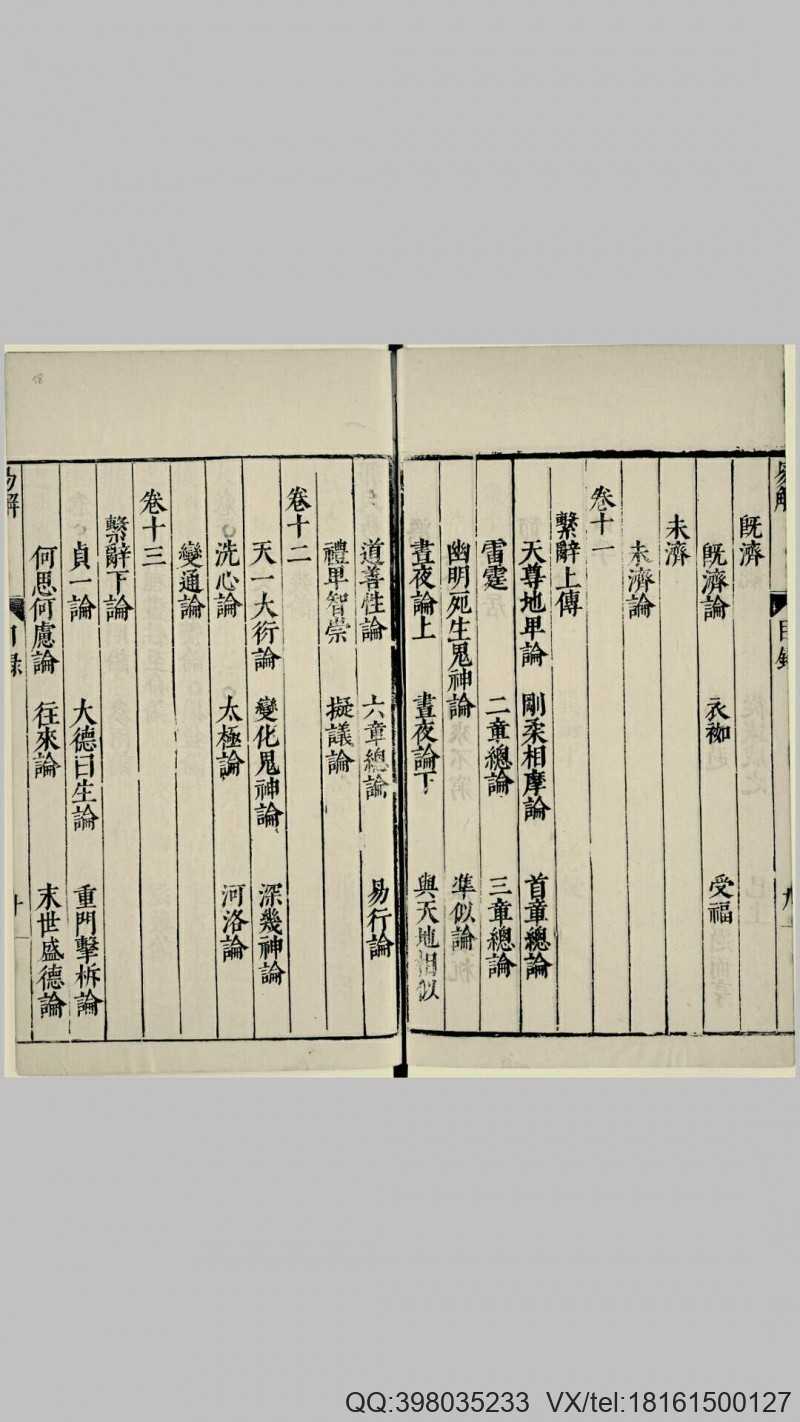 旣濟
旣濟論 衣袽 受福
未濟
未濟論
卷十一
繫辭上傳
天尊地卑論 剛柔相摩論 首章總論
雷霆 二章總論 三章總論
幽明死生鬼神論 準似論
晝夜論上 晝夜論下 與天地相似
目錄
道善性論 六章總論 易行論
禮卑智崇 擬議論
卷十二
天一大衍論 變化鬼神論 深幾神論
洗心論 太極論 河洛論
變通論
卷十三
繫辭下論
貞一論 大德曰生論 重門擊柝論
何思何慮論 往來論 末世盛德論
易解 目錄 十
QQ:398035233 VX/tel:18161500127